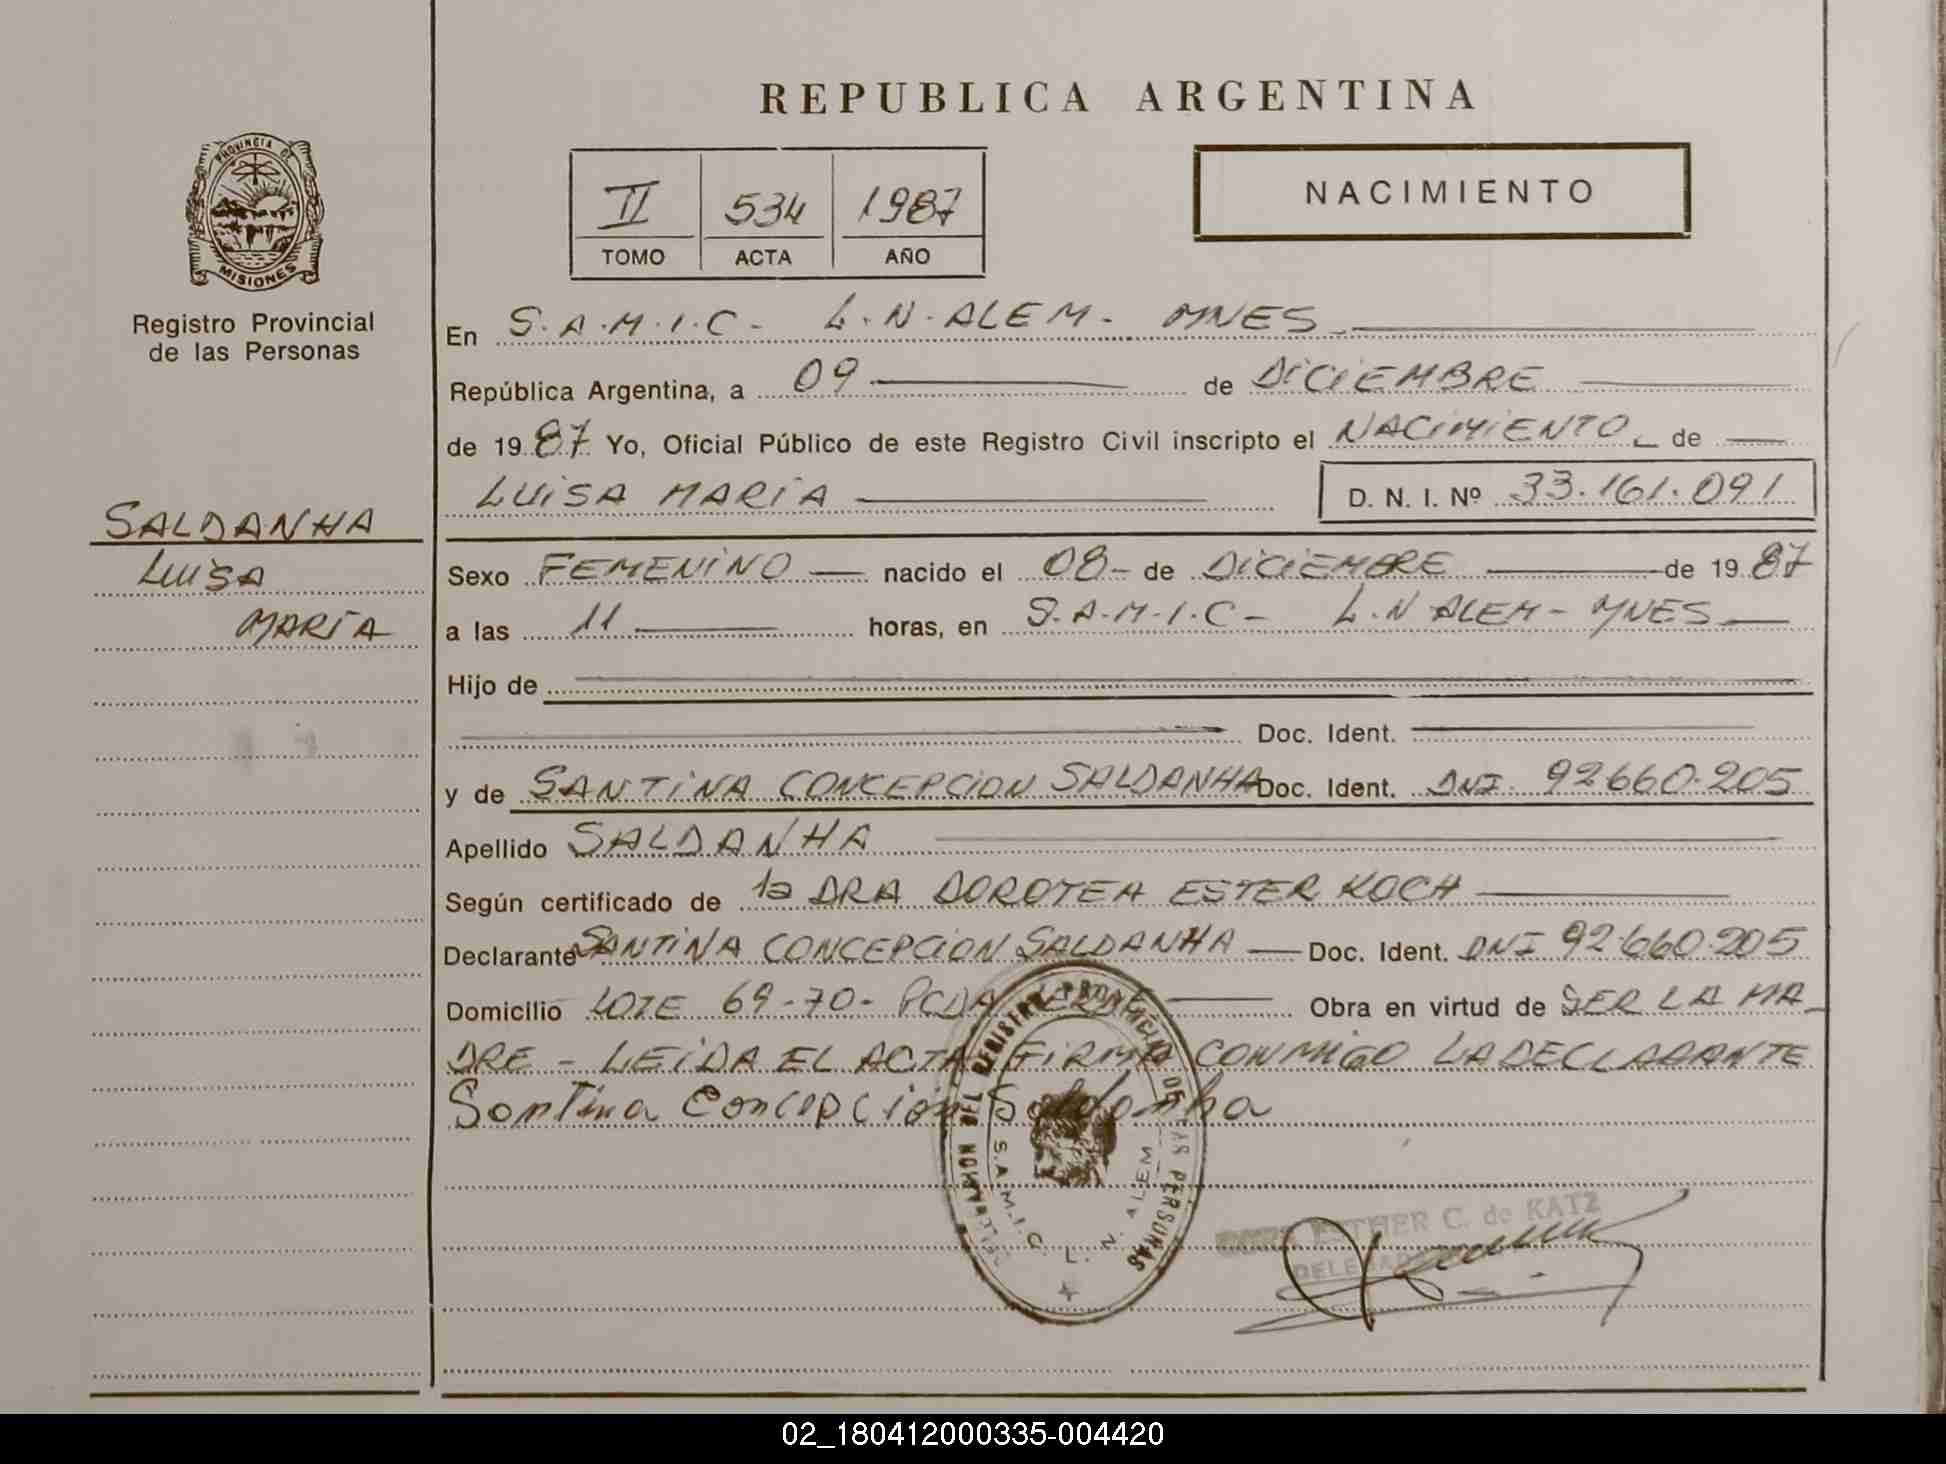 REPUBLICA ARGENTINA
PROVINCIA DE
MISIONES
Registro Provincial
de las Personas
II 534 1987
TOMO ACTA AÑO
NACIMIENTO
En S.A.M.I.C- L.N.ALEM- MNES
República Argentina, a 09 de DICIEMBRE
de 1987 Yo, Oficial Público de este Registro Civil inscripto el NACIMIENTO de
LUISA MARÍA D. N. I. Nº 33.161.091
SALDANHA
LUISA
MARÍA
Sexo FEMENINO nacido el 08- de DICIEMBRE de 1987
a las 11 horas, en S.A.M.I.C- L.N ALEM- MNES
Hijo de
Doc. Ident.
y de SANTINA CONCEPCION SALDANHA Doc. Ident. DNI 92660.205
Apellido SALDANHA
Según certificado de la DRA DOROTEA ESTER KOCH
Declarante SANTINA CONCEPCION SALDANHA Doc. Ident. DNI 92.660.205
Domicilio LOTE 69-70- PCDA Obra en virtud de SER LA MA-
DRE - LEIDA EL ACTA FIRMA CONMIGO LA DECLARANTE
Santina Concepción Saldanha
DEL REGISTRO PROVINCIAL DE LAS PERSONAS
S.A.M.I.C. L. N. ALEM
ESTHER C. de KATZ
02_180412000335-004420